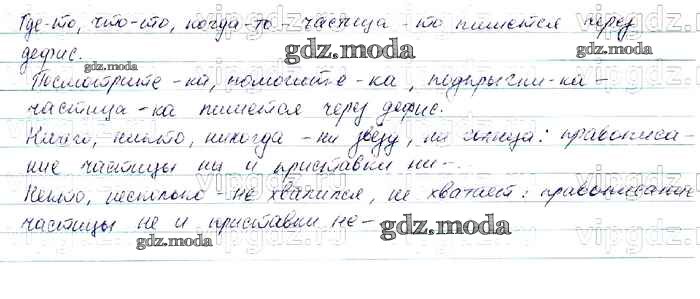 Где-то, что-то, когда-то - частица -то пишется через
дефис.
Посмотрите-ка, помогите-ка, подпрыгни-ка -
частица -ка пишется через дефис.
Ничего, никто, никогда - ни звезд, ни солнца: правописа-
ние частицы ни и приставки ни-.
Некто, несколько - не хватился, не хватает: правописание
частицы не и приставки не-
gdz.moda
gdz.moda
gdz.moda
gdz.moda
gdz.moda
gdz.moda